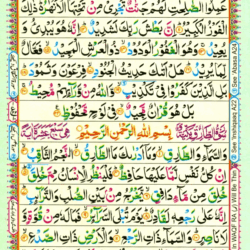 عَمِلُوا الصّٰلِحٰتِ لَهُمْ جَنّٰتٌ تَجْرِيْ مِنْ تَحْتِهَا الْاَنْهٰرُ ذٰلِكَ
الْفَوْزُ الْكَبِيْرُ اِنَّ بَطْشَ رَبِّكَ لَشَدِيْدٌ اِنَّهٗ هُوَ يُبْدِئُ وَ
يُعِيْدُ وَهُوَ الْغَفُوْرُ الْوَدُوْدُ ذُو الْعَرْشِ الْمَجِيْدُ فَعَّالٌ
لِّمَا يُرِيْدُ هَلْ اَتٰىكَ حَدِيْثُ الْجُنُوْدِ فِرْعَوْنَ وَثَمُوْدَ
بَلِ الَّذِيْنَ كَفَرُوْا فِيْ تَكْذِيْبٍ وَّاللّٰهُ مِنْ وَّرَآئِهِمْ مُّحِيْطٌ
بَلْ هُوَ قُرْاٰنٌ مَّجِيْدٌ فِيْ لَوْحٍ مَّحْفُوْظٍ
بِسْمِ اللّٰهِ الرَّحْمٰنِ الرَّحِيْمِ
وَالسَّمَآءِ وَالطَّارِقِ وَمَآ اَدْرٰىكَ مَا الطَّارِقُ النَّجْمُ الثَّاقِبُ
اِنْ كُلُّ نَفْسٍ لَّمَّا عَلَيْهَا حَافِظٌ فَلْيَنْظُرِ الْاِنْسَانُ مِمَّ
خُلِقَ خُلِقَ مِنْ مَّآءٍ دَافِقٍ يَّخْرُجُ مِنْ بَيْنِ الصُّلْبِ وَالتَّرَآئِبِ
اِنَّهٗ عَلٰى رَجْعِهٖ لَقَادِرٌ يَوْمَ تُبْلَى السَّرَآئِرُ فَمَا لَهٗ مِنْ قُوَّةٍ
وَّلَا نَاصِرٍ وَالسَّمَآءِ ذَاتِ الرَّجْعِ وَالْاَرْضِ ذَاتِ الصَّدْعِ